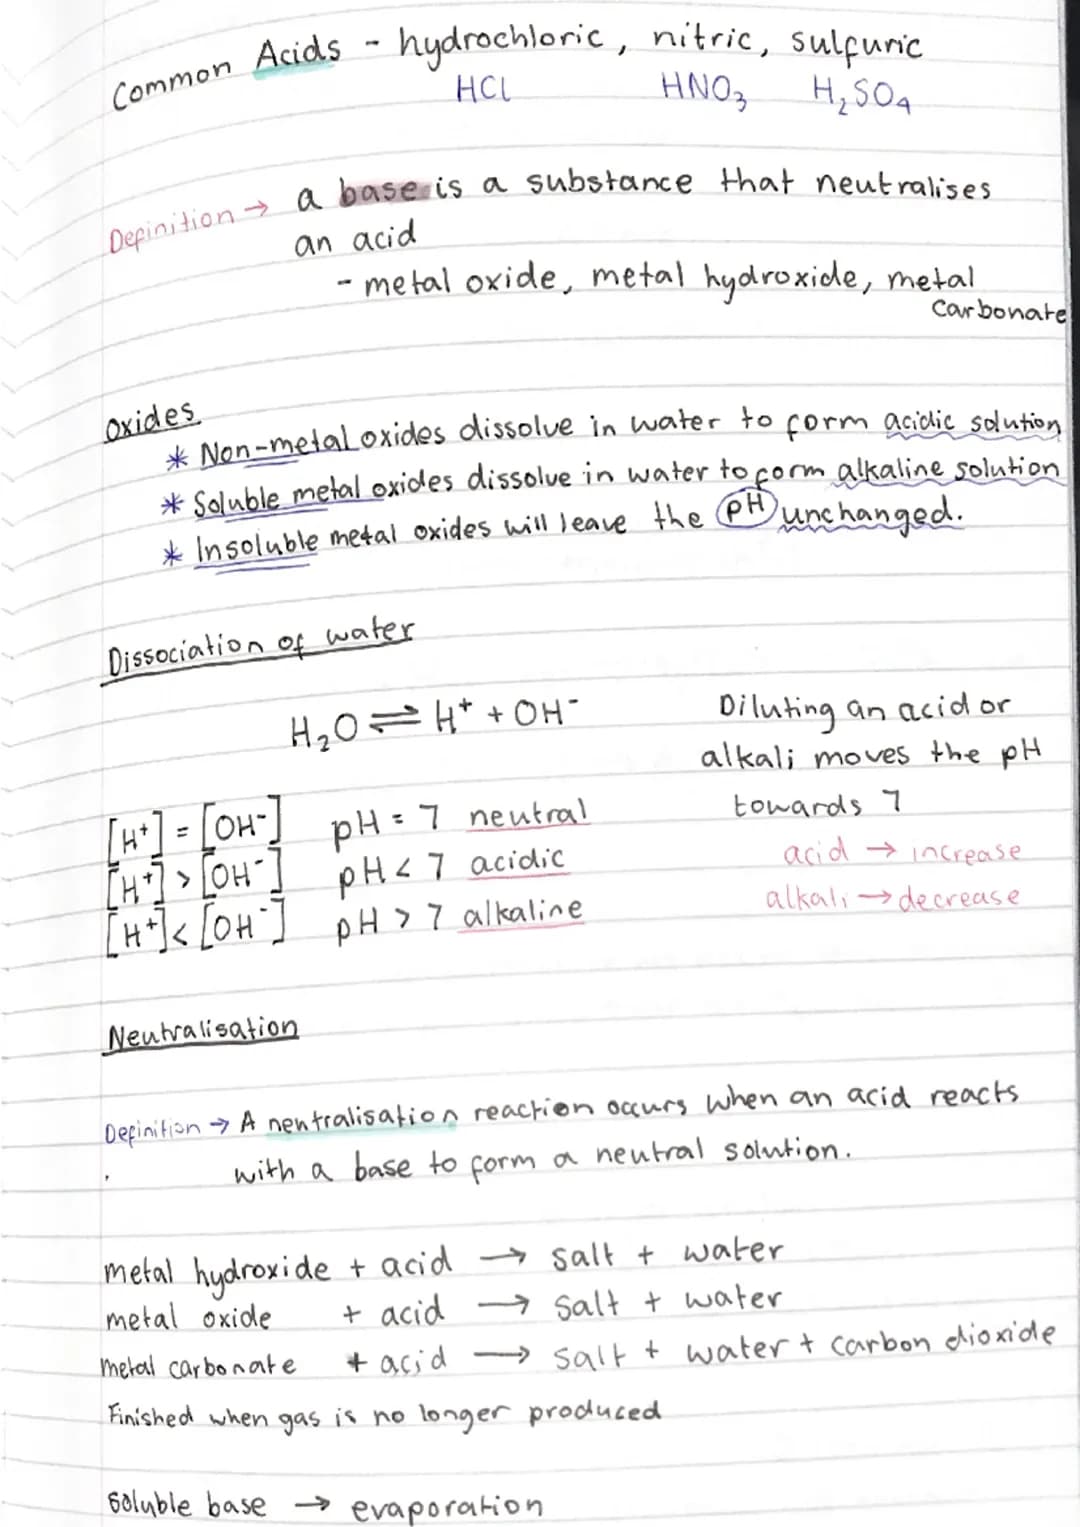 Common Acids - hydrochloric, nitric, sulfuric
HCl HNO₃ H₂SO₄
Definition → a base is a substance that neutralises
an acid
- metal oxide, metal hydroxide, metal
carbonate
oxides
* Non-metal oxides dissolve in water to form acidic solution
* Soluble metal oxides dissolve in water to form alkaline solution
* Insoluble metal oxides will leave the pH unchanged.
Dissociation of water
H₂O ⇌ H⁺ + OH⁻
Diluting an acid or
alkali moves the pH
towards 7
acid → increase
alkali → decrease
[H⁺] = [OH⁻] pH = 7 neutral
[H⁺] > [OH⁻] pH < 7 acidic
[H⁺] < [OH⁻] pH > 7 alkaline
Neutralisation
Definition → A neutralisation reaction occurs when an acid reacts
with a base to form a neutral solution.
metal hydroxide + acid → salt + water
metal oxide + acid → salt + water
metal carbonate + acid → salt + water + carbon dioxide
Finished when gas is no longer produced
soluble base → evaporation